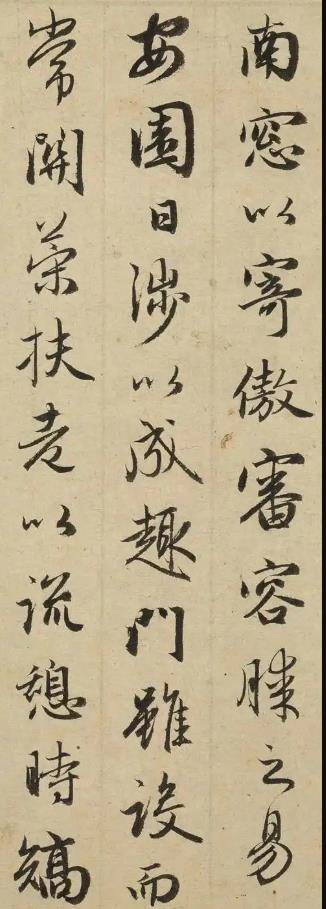 南窓以寄傲審容膝之易
安園日涉以成趣門雖設而
常關策扶老以流憩時矯